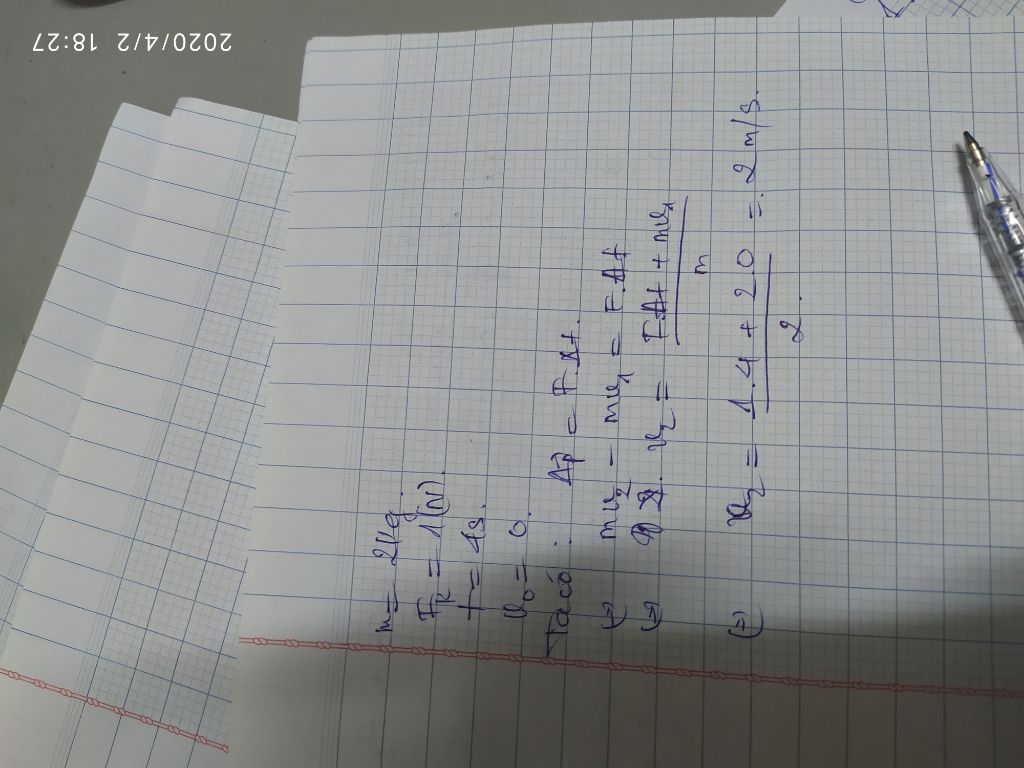 2020/4/2 18:27
m = 2kg
Fk = 1(N).
t = 4s.
v₀ = 0.
Ta có: Δp = F.Δt.
(=) mv₂ - mv₁ = F.Δt
(=) v₂ = F.Δt + mv₁ / m
(=) v₂ = 1.4 + 2.0 / 2. = 2 m/s.